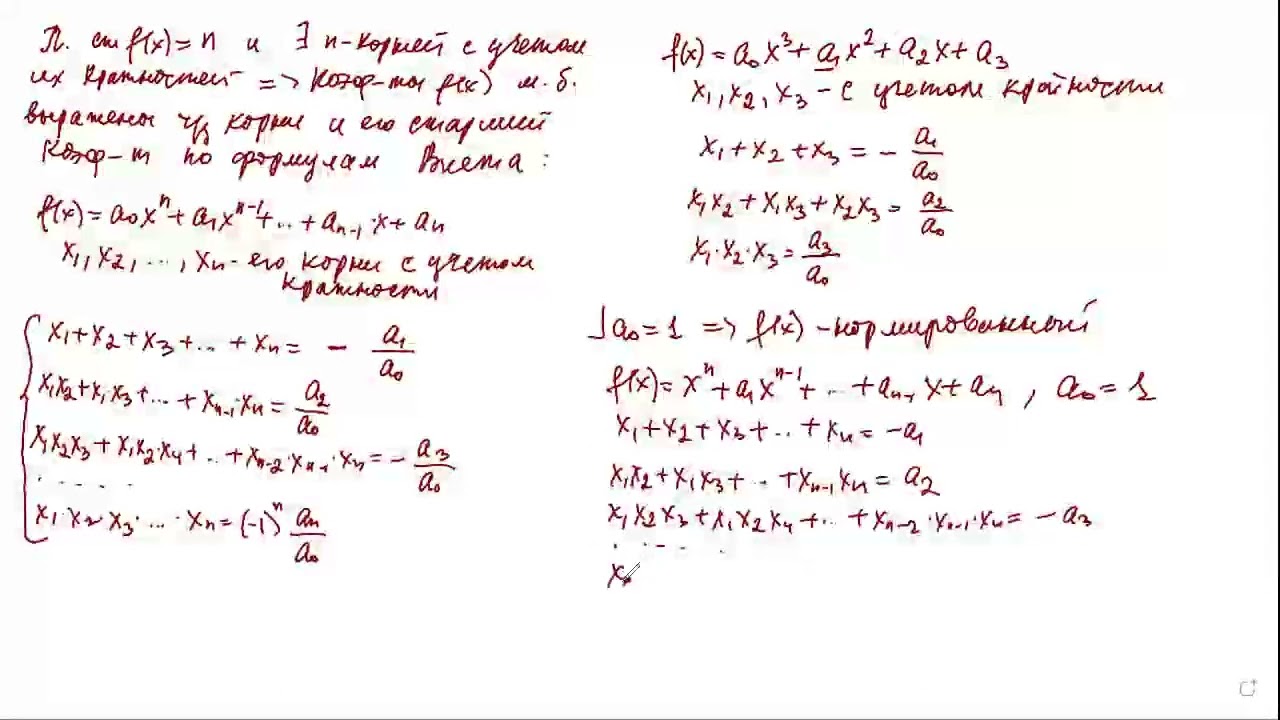 П. ст f(x) = n и ∃ n-корней с учетом
их кратностей => Коэф-ты f(x) м. б.
выражены ч/з корни и его старший
коэф-т по формулам Виета:
f(x) = a₀xⁿ + a₁xⁿ⁻¹ + ... + aₙ₋₁·x + aₙ
x₁, x₂, ..., xₙ - его корни с учетом
кратности
x₁ + x₂ + x₃ + ... + xₙ = - a₁/a₀
x₁x₂ + x₁·x₃ + ... + xₙ₋₁·xₙ = a₂/a₀
x₁x₂x₃ + x₁x₂·x₄ + ... + xₙ₋₂·xₙ₋₁·xₙ = - a₃/a₀
. . . . .
x₁·x₂·x₃·...·xₙ = (-1)ⁿ aₙ/a₀
f(x) = a₀x³ + a₁x² + a₂x + a₃
x₁, x₂, x₃ - с учетом кратности
x₁ + x₂ + x₃ = - a₁/a₀
x₁x₂ + x₁x₃ + x₂x₃ = a₂/a₀
x₁·x₂·x₃ = a₃/a₀
⅃ a₀ = 1 => f(x) - нормированный
f(x) = xⁿ + a₁xⁿ⁻¹ + ... + aₙ₋₁x + aₙ, a₀ = 1
x₁ + x₂ + x₃ + ... + xₙ = -a₁
x₁x₂ + x₁x₃ + ... + xₙ₋₁xₙ = a₂
x₁x₂x₃ + x₁x₂x₄ + ... + xₙ₋₂·xₙ₋₁·xₙ = -a₃
. . . . .
x